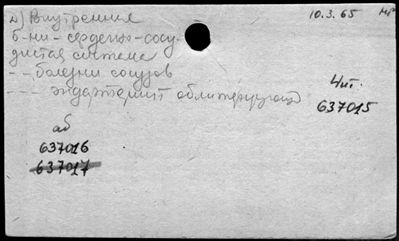 д) Внутренние
10.3.65
б-ни - сердечно-сосу-
дистая система
- - болезни сосудов
- - - эндартериит облитерирующий
Чит.
637015
аб
637016
637017